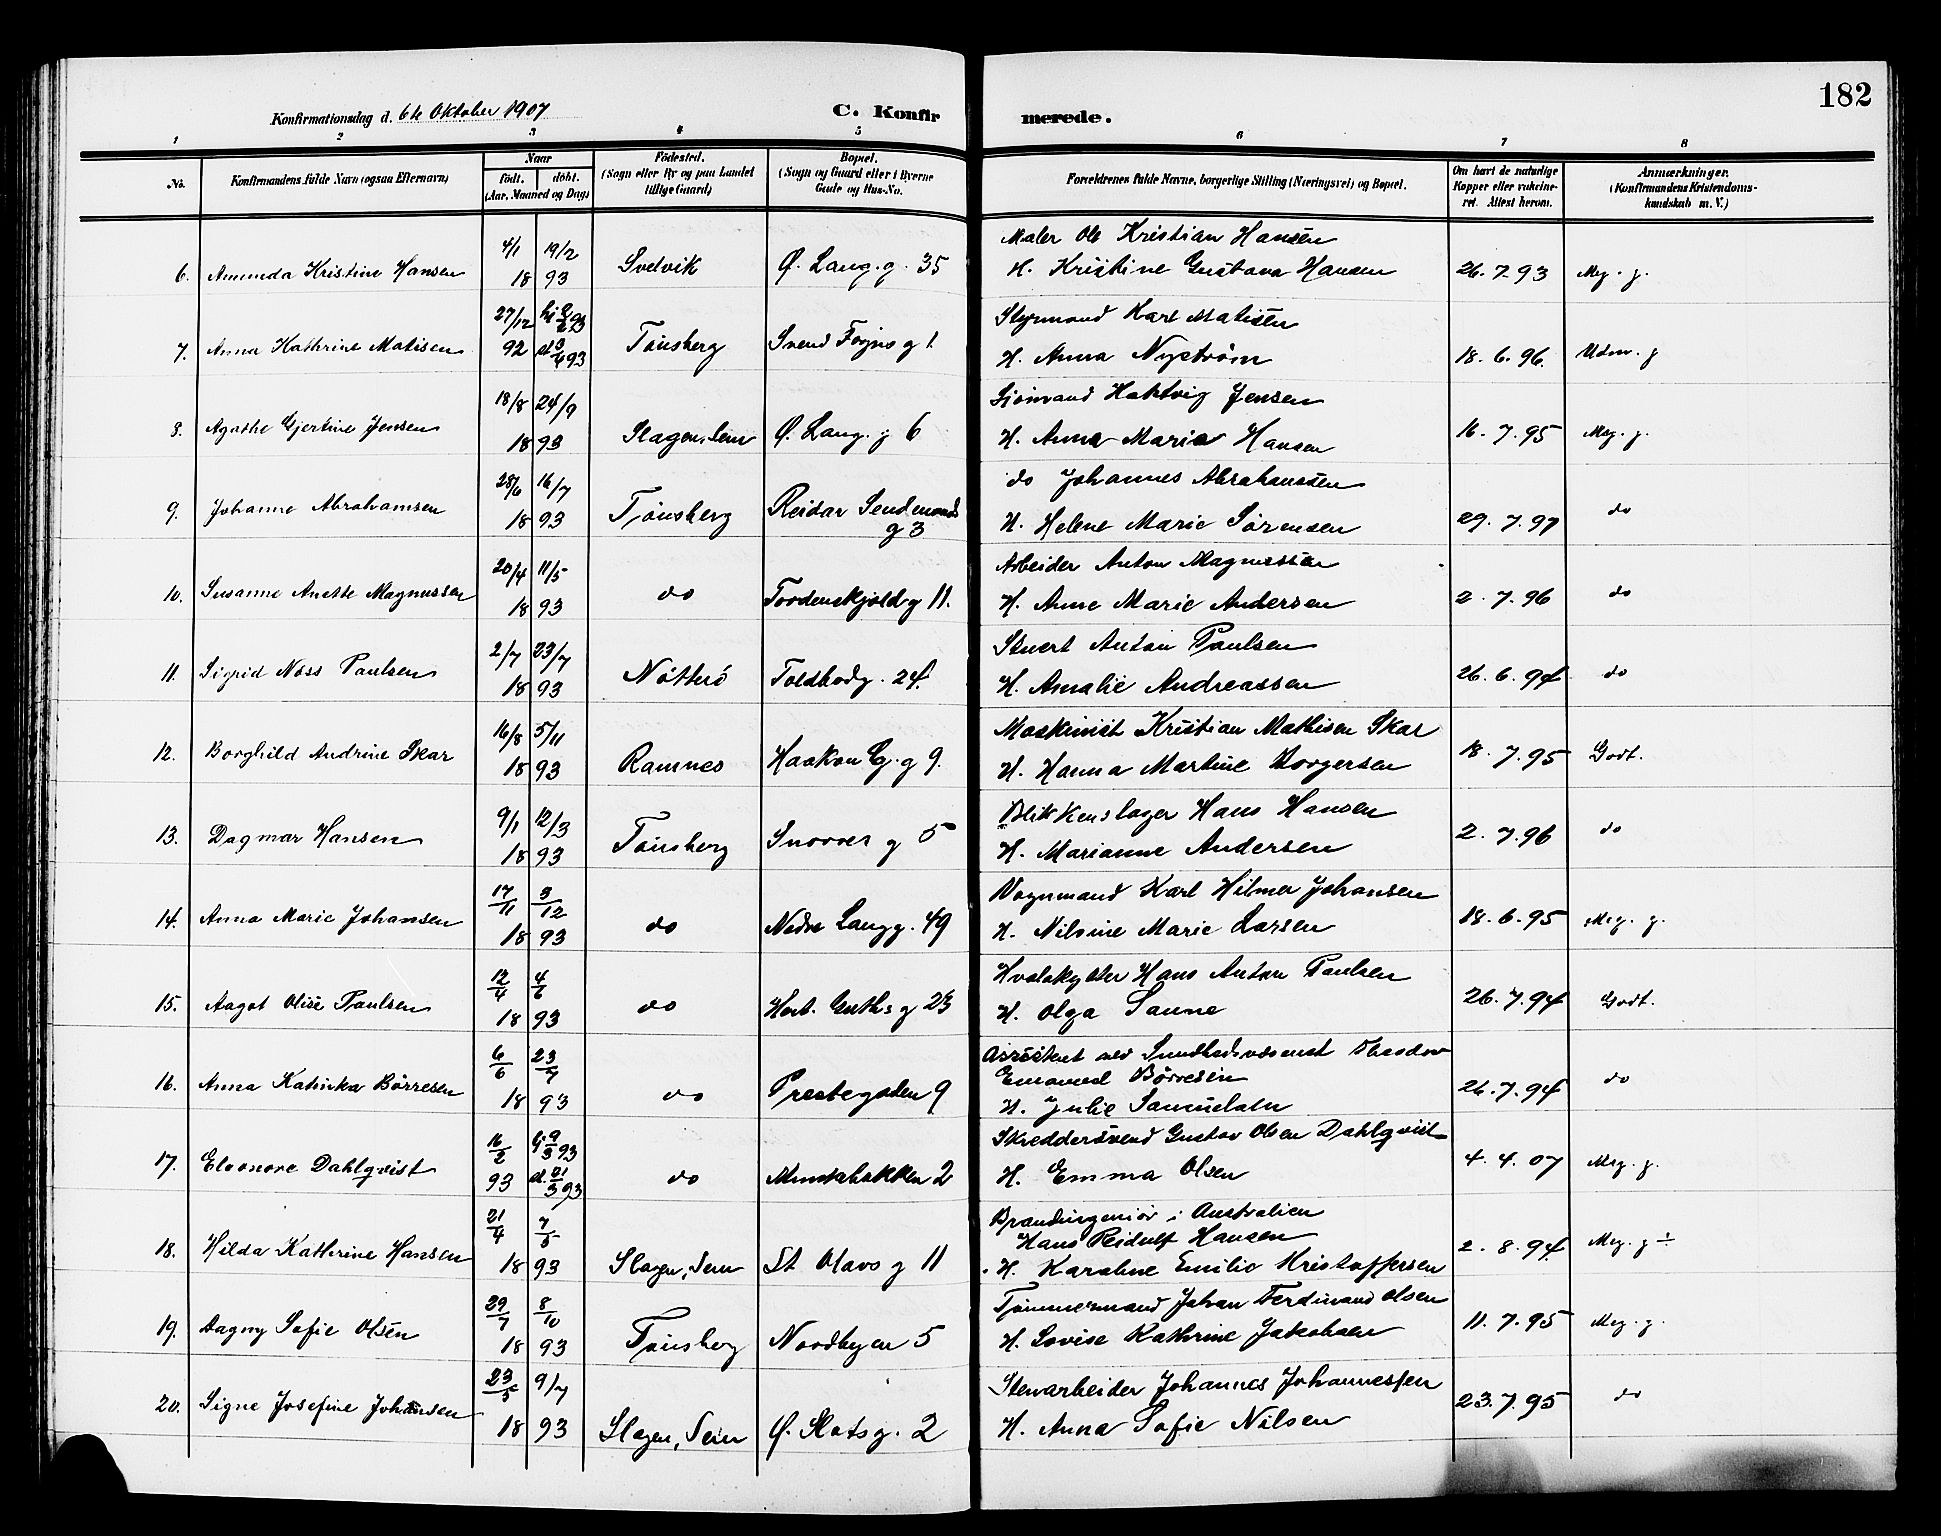 182
Konfirmationsdag d. 6te Oktober 1907
C. Konfirmerede.
1 2 3 4 5 6 7 8
No. Konfirmandens fulde Navn (ogsaa Efternavn) Naar født. døbt. (Aar, Maaned og Dag) Fødested. (Sogn eller By og paa Landet tillige Gaard) Bopæl. (Sogn og Gaard eller i Byerne Gade og Hus-No. Forældrenes fulde Navne, borgerlige Stilling (Næringsvei) og Bopæl. Om havt de naturlige Kopper eller vakcineret. Attest herom. Anmærkninger. (Konfirmandens Kristendomskundskab m. V.)
4/1 19/2 Maler Ole Kristian Hansen
6. Kristine Hansen 18 93 Svelvik Ø. Lang.g. 35 H. Kristine Gustava Hansen 26.7.93 Meg. g.
27/12 hj 93 Styrmand Karl Matisen
7. Anna Kathrine Matisen 92 d 93 Tønsberg Svend Foyns g 1. H. Anna Nystrøm 18.6.96. Udm. g
18/8 24/9 Sjømand Hartvig Jensen
8. Agathe Gjertine Jensen 18 93 Slagen, Sem Ø. Lang. g 6 H. Anna Maria Hansen 16.7.95 Meg. g.
28/6 16/7 do Johannes Abrahamsen
9. Johanne Abrahamsen 18 93 Tønsberg Reidar Sendemands g 3 H. Helene Marie Sørensen 29.7.97 do
20/4 11/5 Arbeider Anton Magnussen
10. Susanne Anette Magnussen 18 93 do Tordenskjold g 11. H. Anne Marie Andersen 2.7.96 do
2/7 23/7 Stuert Anton Paulsen
11. Sigrid Næss Paulsen 18 93 Nøtterø Toldbodg. 24. H. Amalie Andreassen 26.6.94 do
16/8 5/11 Maskinist Kristian Mathisen Skar
12. Borghild Andrine Skar 18 93 Ramnes Haakon G. g 9. H. Hanna Martine Borgersen 18.7.95 Godt.
9/1 12/3 Blikkenslager Hans Hansen
13. Dagmar Hansen 18 93 Tønsberg Snorres g 5 H. Marianne Andersen 2.7.96 do
17/11 3/12 Vognmand Karl Hilmer Johansen
14. Anna Marie Johansen 18 93 do Nedre Langg. 49 H. Nilsine Marie Larsen 18.6.95 Meg. g.
12/4 4/6 Hvalskytter Hans Anton Paulsen
15. Aagot Olise Paulsen 18 93 do g 23 H. Olga Sanne 26.7.94 Godt.
6/6 23/7 Assistent ved Sundhedsvæsenet Theodor
Emanuel Børresen
16. Anna Katinka Børresen 18 93 do Prestegaden 9 H. Julie Samuelsen 26.7.94 do
16/2 hj 9/3 93 Skreddersvend Gustav Olsen Dahlqvist
17. Eleonore Dahlqvist 93 d. 21/3 93 do Munkebakken 2 H. Emma Olsen 4.4.07 Meg. g.
21/4 7/5 Brandingeniør i Australien
Hans Reidulf Hansen
18. Hilda Kathrine Hansen 18 93 Slagen, Sem St Olavs g 11 H. Karoline Emilie Kristoffersen 2.8.94 Meg. g ÷
29/7 8/10 Tømmermand Johan Ferdinand Olsen
19. Dagny Sofie Olsen 18 93 Tønsberg Nordbyen 5 H. Lovise Kathrine Jakobsen 11.7.95 Meg. g.
23/5 9/7 Stenarbeider Johannes Johannessen
20. Signe Josefine Johansen 18 93 Slagen, Sem Ø. Slotsg. 2 H. Anna Sofie Nilsen 23.7.95 do